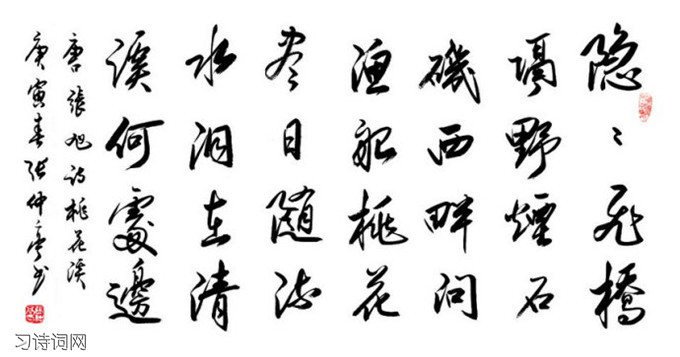 隐〻飛橋
隔野煙石
磯西畔问
渔船桃花
尽日随流
水洞在清
溪何處邊
唐張旭诗桃花溪
庚寅春张仲亭书
习诗词网